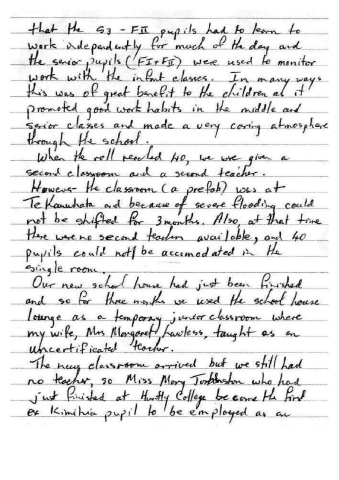 that the S3 - FII pupils had to learn to
work independently for much of the day and
the senior pupils (FI+FII) were used to monitor
work with the infant classes. In many ways
this was of great benefit to the children as it
promoted good work habits in the middle and
senior classes and made a very caring atmosphere
through the school.
When the roll reached 40, we were given a
second classroom and a second teacher.
However the classroom (a prefab) was at
Te Kauwhata and because of severe flooding could
not be shifted for 3 months. Also, at that time
there were no second teachers available, and 40
pupils could not be accomodated in the
single room.
Our new school house had just been finished
and so for three months we used the school house
lounge as a temporary junior classroom where
my wife, Mrs Margaret Lawless, taught as an
uncertificated teacher.
The new classroom arrived but we still had
no teacher, so Miss Mary who had
just finished at Huntly College became the first
ex Kimihia pupil to be employed as an